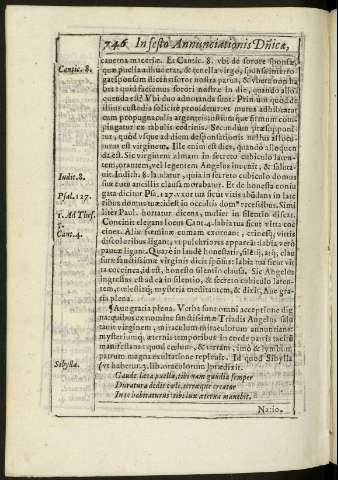 746 In festo Annunciationis Dñicæ,
cauerna maceriæ. Et Cantic. 8. vbi de sorore sponsæ,
Cantic. 8. quæ puella adhuc erat, & tenella virgo, sponsi interro
gat sponsum dicens: soror nostra parua, & vbera non ha
bet: quid faciemus sorori nostræ in die, quando allo
quenda est? Vbi duo adnotanda sunt: Primum quòd de
illius custodia sollicitè prouidetur: ex
cum propugnaculis argenteis: ostium
pingatur ex tabulis cedrinis. Secundum præsupponi
tur, quòd vsque ad diem desponsationis nullus allocu
turus est virginem. Ille enim est dies, quando alloquen
da est. Sic virginem almam in secreto cubiculo laten-
tem, orantem, vel legentem Angelus inuenit, & saluta-
Iudit. 8. uit. Iudith. 8. laudatur, quia in secreto cubiculo domus
suæ cum ancillis clausa morabatur. Et de honesta coniu
Psal. 127. gata dicitur Ps. 127. vxor tua sicut vitis abũdans in late
ribus domus tuæ: idest in occultis dom⁹ recessibus. Simi
1. Ad Thes. liter Paul. hortatur dicens, mulier in silentio discat.
5.
Cant. 4. Consonat elegans locus Cant. 4. labia tua sicut vitta coc
cinea. Aliæ
discoloribus ligant, vt pulchriores appareāt: labia verò
pauca ligant. Quare in laudē honestatis, silētij, atq; clau
suræ sanctissimæ virginis dicit spōsus: labia tua sicut vit
ta coccinea, id est, honesto silentio clausa. Sic Angelus
ingressus est ad eā in silentio, & secreto cubiculo laten-
tem, cœlestiaq; mysteria meditantem, & dicit, Aue gra-
tia plena.
¶ Aue gratia plena. Verba sunt omni acceptione dig
na, quibus ex nomine sanctissimæ Triadis Angelus salu
tauit virginem, miraculum miraculorum annuntians:
mysteriumq; æternis temporibus in corde patris taciti
manifestans: quod cœlum, & terram, imò & lymbum
patrum magna exultatione repleuit. Id quod Sibylla
Sibylla. (vt habetur 4. lib. oraculorum) prædixit.
Gaude læta puella, tibi nam gaudia semper
Duratura dedit cœli, terræque creator
In te habitaturus tibi lux æterna manebit.
Natio.